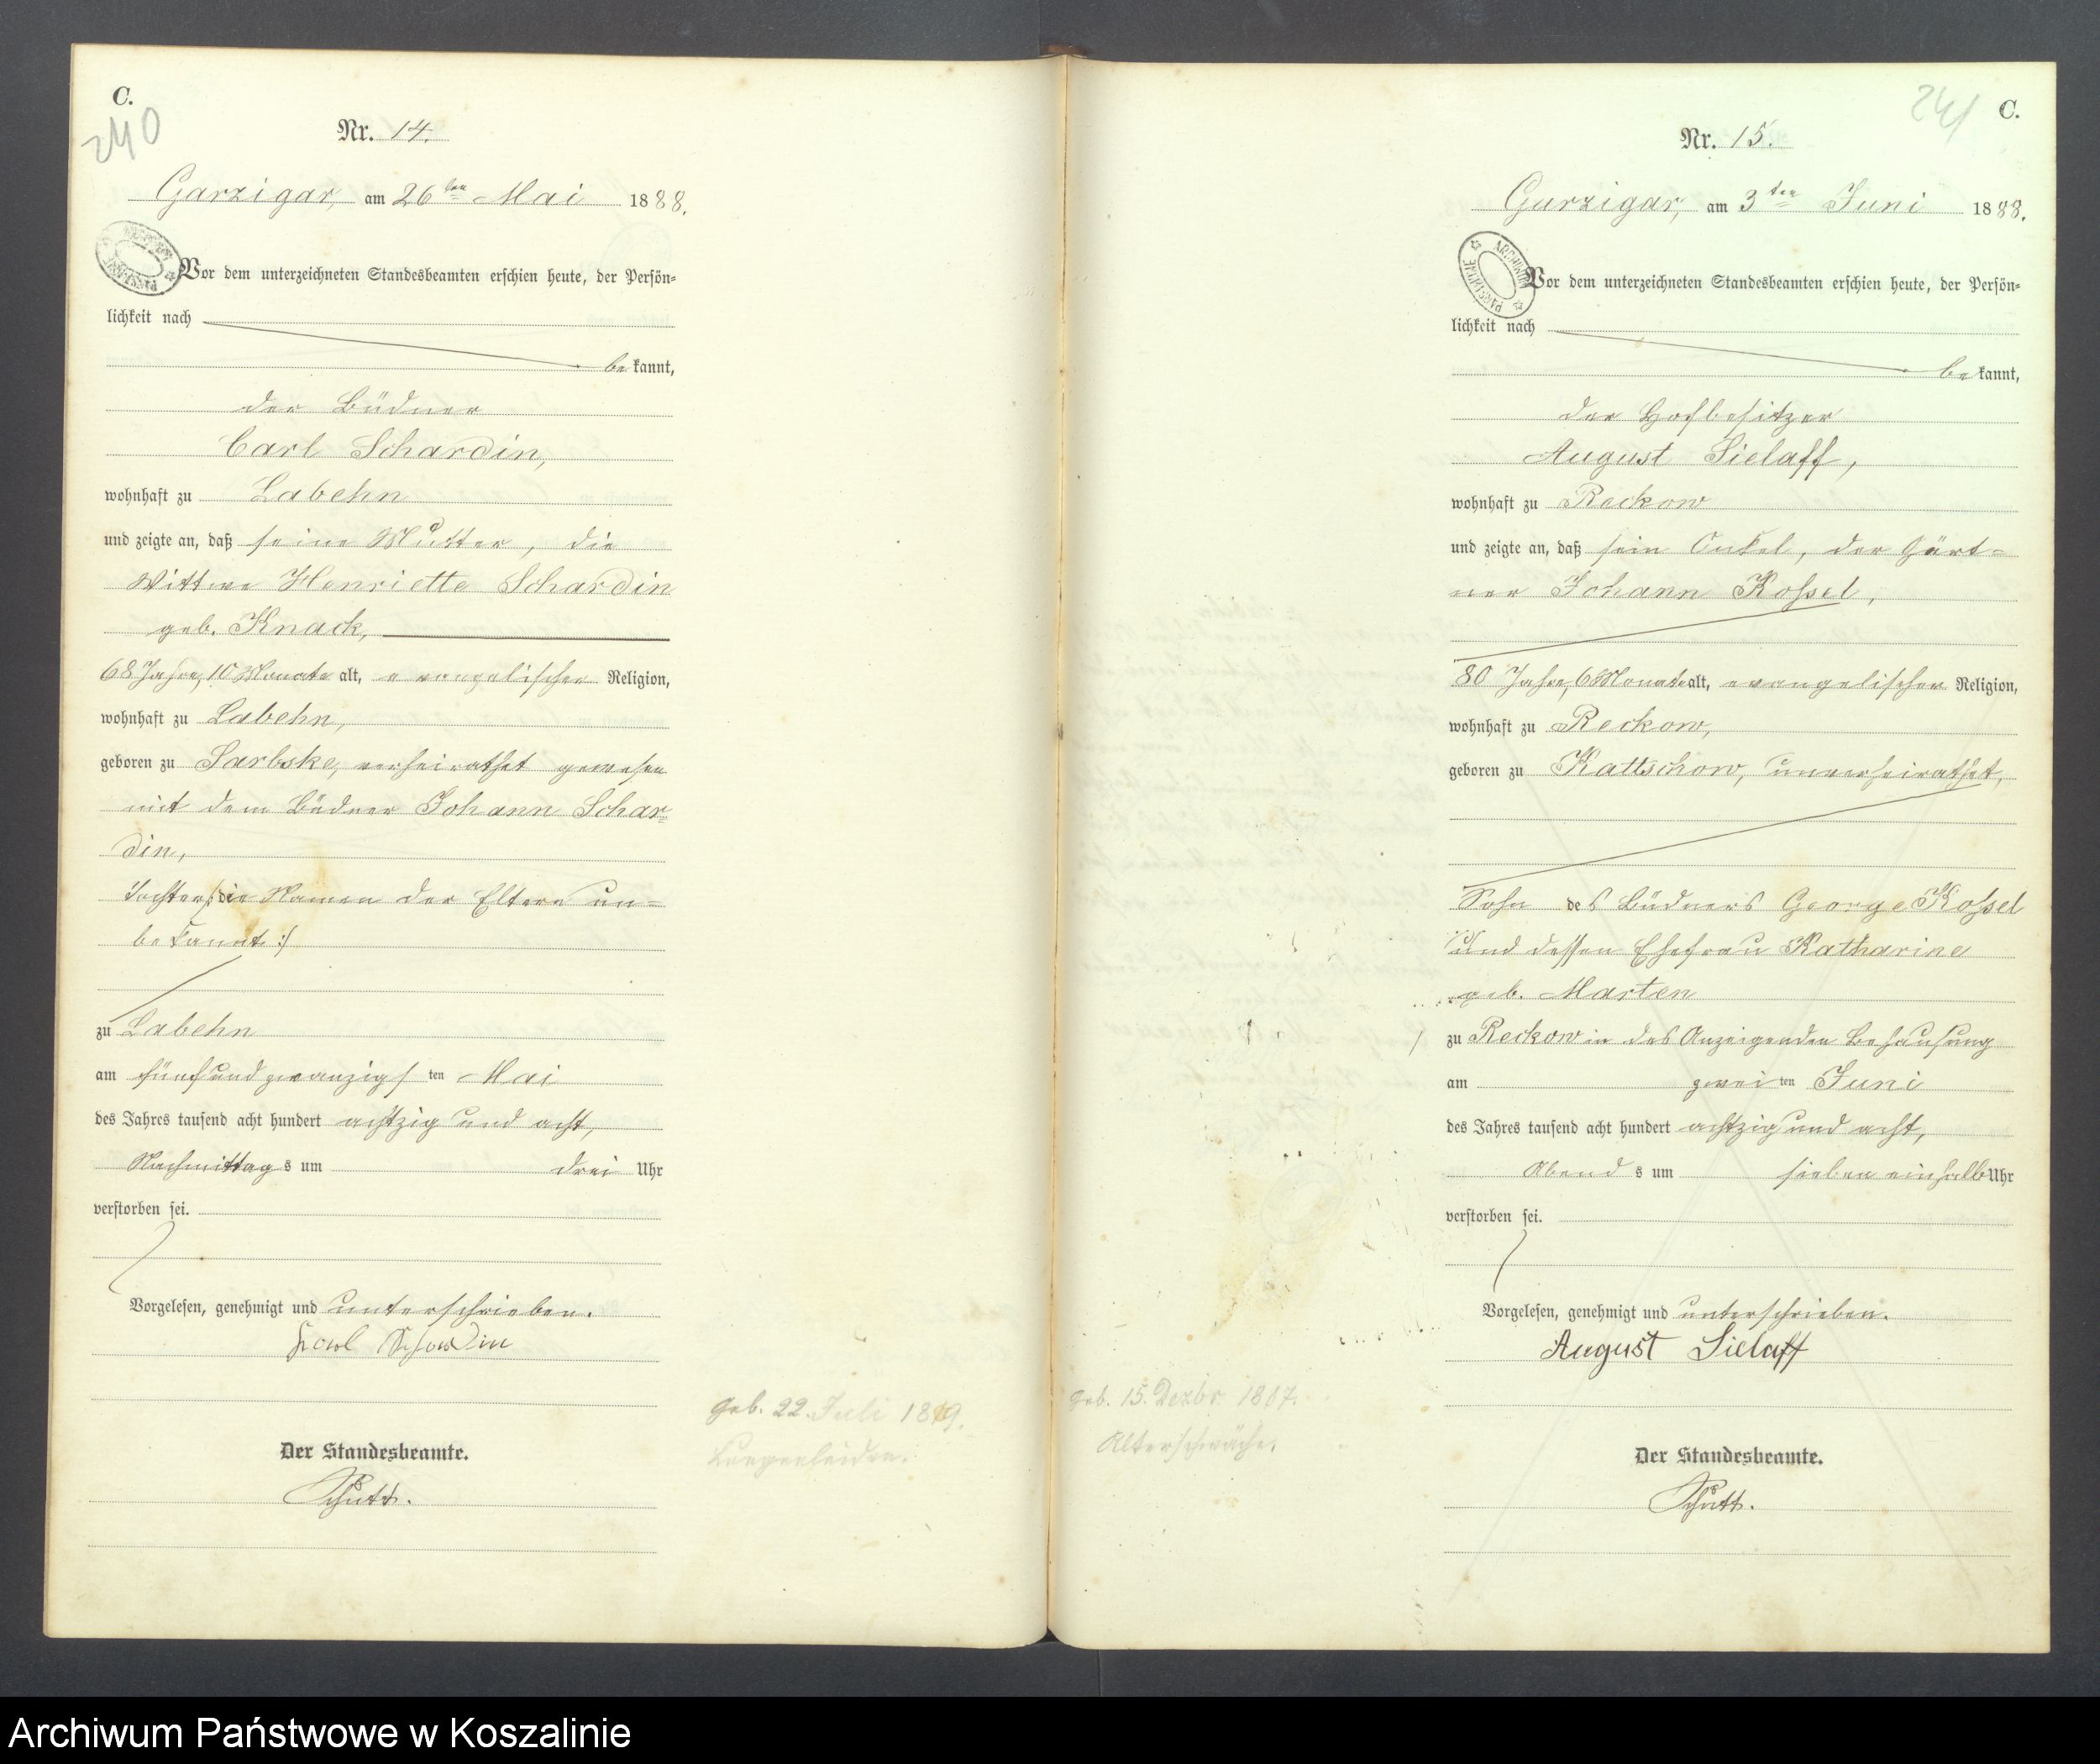 C.
240
Nr. 14.
Garzigar, am 26ten Mai 1888.
Vor dem unterzeichneten Standesbeamten erschien heute, der Persön=
lichkeit nach
bekannt,
der Büdner
Carl Schardin,
wohnhaft zu Labehn
und zeigte an, daß seine Mutter, die
Wittwe Henriette Schardin
geb. Knack,
68 Jahre, 10 Monate alt, evangelischer Religion,
wohnhaft zu Labehn,
geboren zu Sarbske, verheirathet gewesen
mit dem Büdner Johann Schar=
din,
Tochter /: die Namen der Eltern un=
bekannt :/
zu Labehn
am fünfundzwanzigsten Mai
des Jahres tausend acht hundert achtzig und acht,
Nachmittags um drei Uhr
verstorben sei.
Vorgelesen, genehmigt und unterschrieben.
Karl Schardin
Der Standesbeamte.
Schutt.
geb. 22. Juli 1819.
Lungenleiden.
241
C.
Nr. 15.
Garzigar, am 3ten Juni 1888.
ARCHIWUM PAŃSTWOWE
Vor dem unterzeichneten Standesbeamten erschien heute, der Persön=
lichkeit nach
bekannt,
der Hofbesitzer
August Sielaff,
wohnhaft zu Reckow
und zeigte an, daß sein Onkel, der Gärt=
ner Johann Kossel,
80 Jahre, 6 Monate alt, evangelischer Religion,
wohnhaft zu Reckow,
geboren zu Kattschow, unverheirathet,
Sohn des Büdners George Kossel
und dessen Ehefrau Katharine
geb. Marten
zu Reckow in des Anzeigenden Behausung
am zweiten Juni
des Jahres tausend acht hundert achtzig und acht,
Abends um sieben einhalb Uhr
verstorben sei.
Vorgelesen, genehmigt und unterschrieben.
August Sielaff
Der Standesbeamte.
Schutt.
geb. 15. Dezbr. 1807.
Altersschwäche.
Archiwum Państwowe w Koszalinie